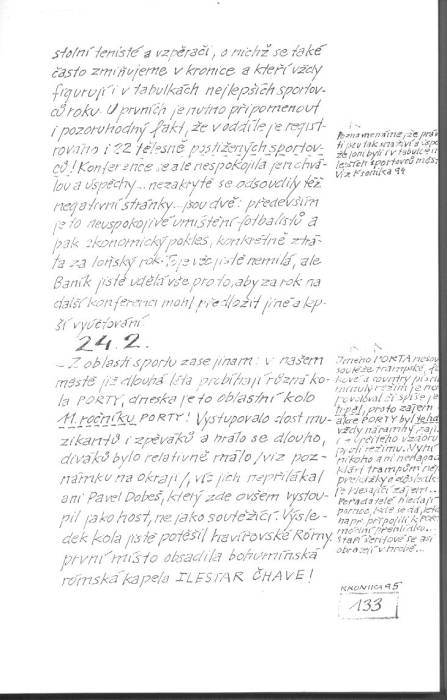 stolní tenisté a vzpěrači, o nichž se také
často zmiňujeme v kronice a kteří vždy
figurují i v tabulkách nejlepších sportov-
ců roku. U prvních je nutno připomenout
i pozoruhodný fakt, že v oddíle je regist-
rováno i 22 tělesně postižených sportov-
ců! Konference se ale nespokojila jen chvá-
lou a úspěchy... nezakrytě se odsoudily též
negativní stránky... jsou dvě: především
je to neuspokojivé umístění fotbalistů a
pak ekonomický pokles, konkrétně ztrá-
ta za loňský rok. To je věc jistě nemilá, ale
Baník jistě udělá vše proto, aby za rok na
další konferenci mohl předložit jiné a lep-
ší vyúčtování.
24.2.
– Z oblasti sportu zase jinam: v našem
městě již dlouhá léta probíhají různá ko-
la PORTY, dneska je to oblastní kolo
11. ročníku PORTY! Vystupovalo dost mu-
zikantů i zpěváků a hrálo se dlouho,
diváků bylo relativně málo /viz poz-
námku na okraji/, víc jich nepřilákal
ani Pavel Dobeš, který zde ovšem vystou-
pil jako host, ne jako soutěžící. Výsle-
dek kola jistě potěšil havířovské Rómy,
první místo obsadila bohumínská
rómská kapela ILESTAR ČHAVE!
Poznamenáme, že
ti
že loni byli i v tabulce
lepších sportovců
Viz Kronika 94
Jméno PORTA
soutěže trampské,
a country
minulý režim je
povoloval či spíše je
trpěl, proto zájem
akce PORTY byl
vždy náramný
i z určitého vzdoru
proti režimu. Nyní
nikoho ani nenapadá
klást trampům
překážky a
je klesající zájem...
Pořadatelé hledají
pomoc, kde se dá,
např. připojili k PORTĚ
módní přehlídku...
Staří
obracejí v hrobě...
KRONIKA 95
133